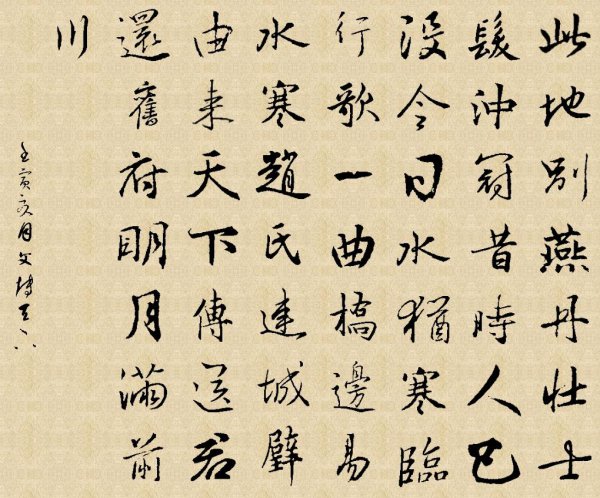 此地別燕丹壯士
髮沖冠昔時人已
沒今日水猶寒臨
行歌一曲橋邊易
水寒趙氏連城璧
由来天下傳送君
還舊府明月滿前
川
壬寅亥月文博